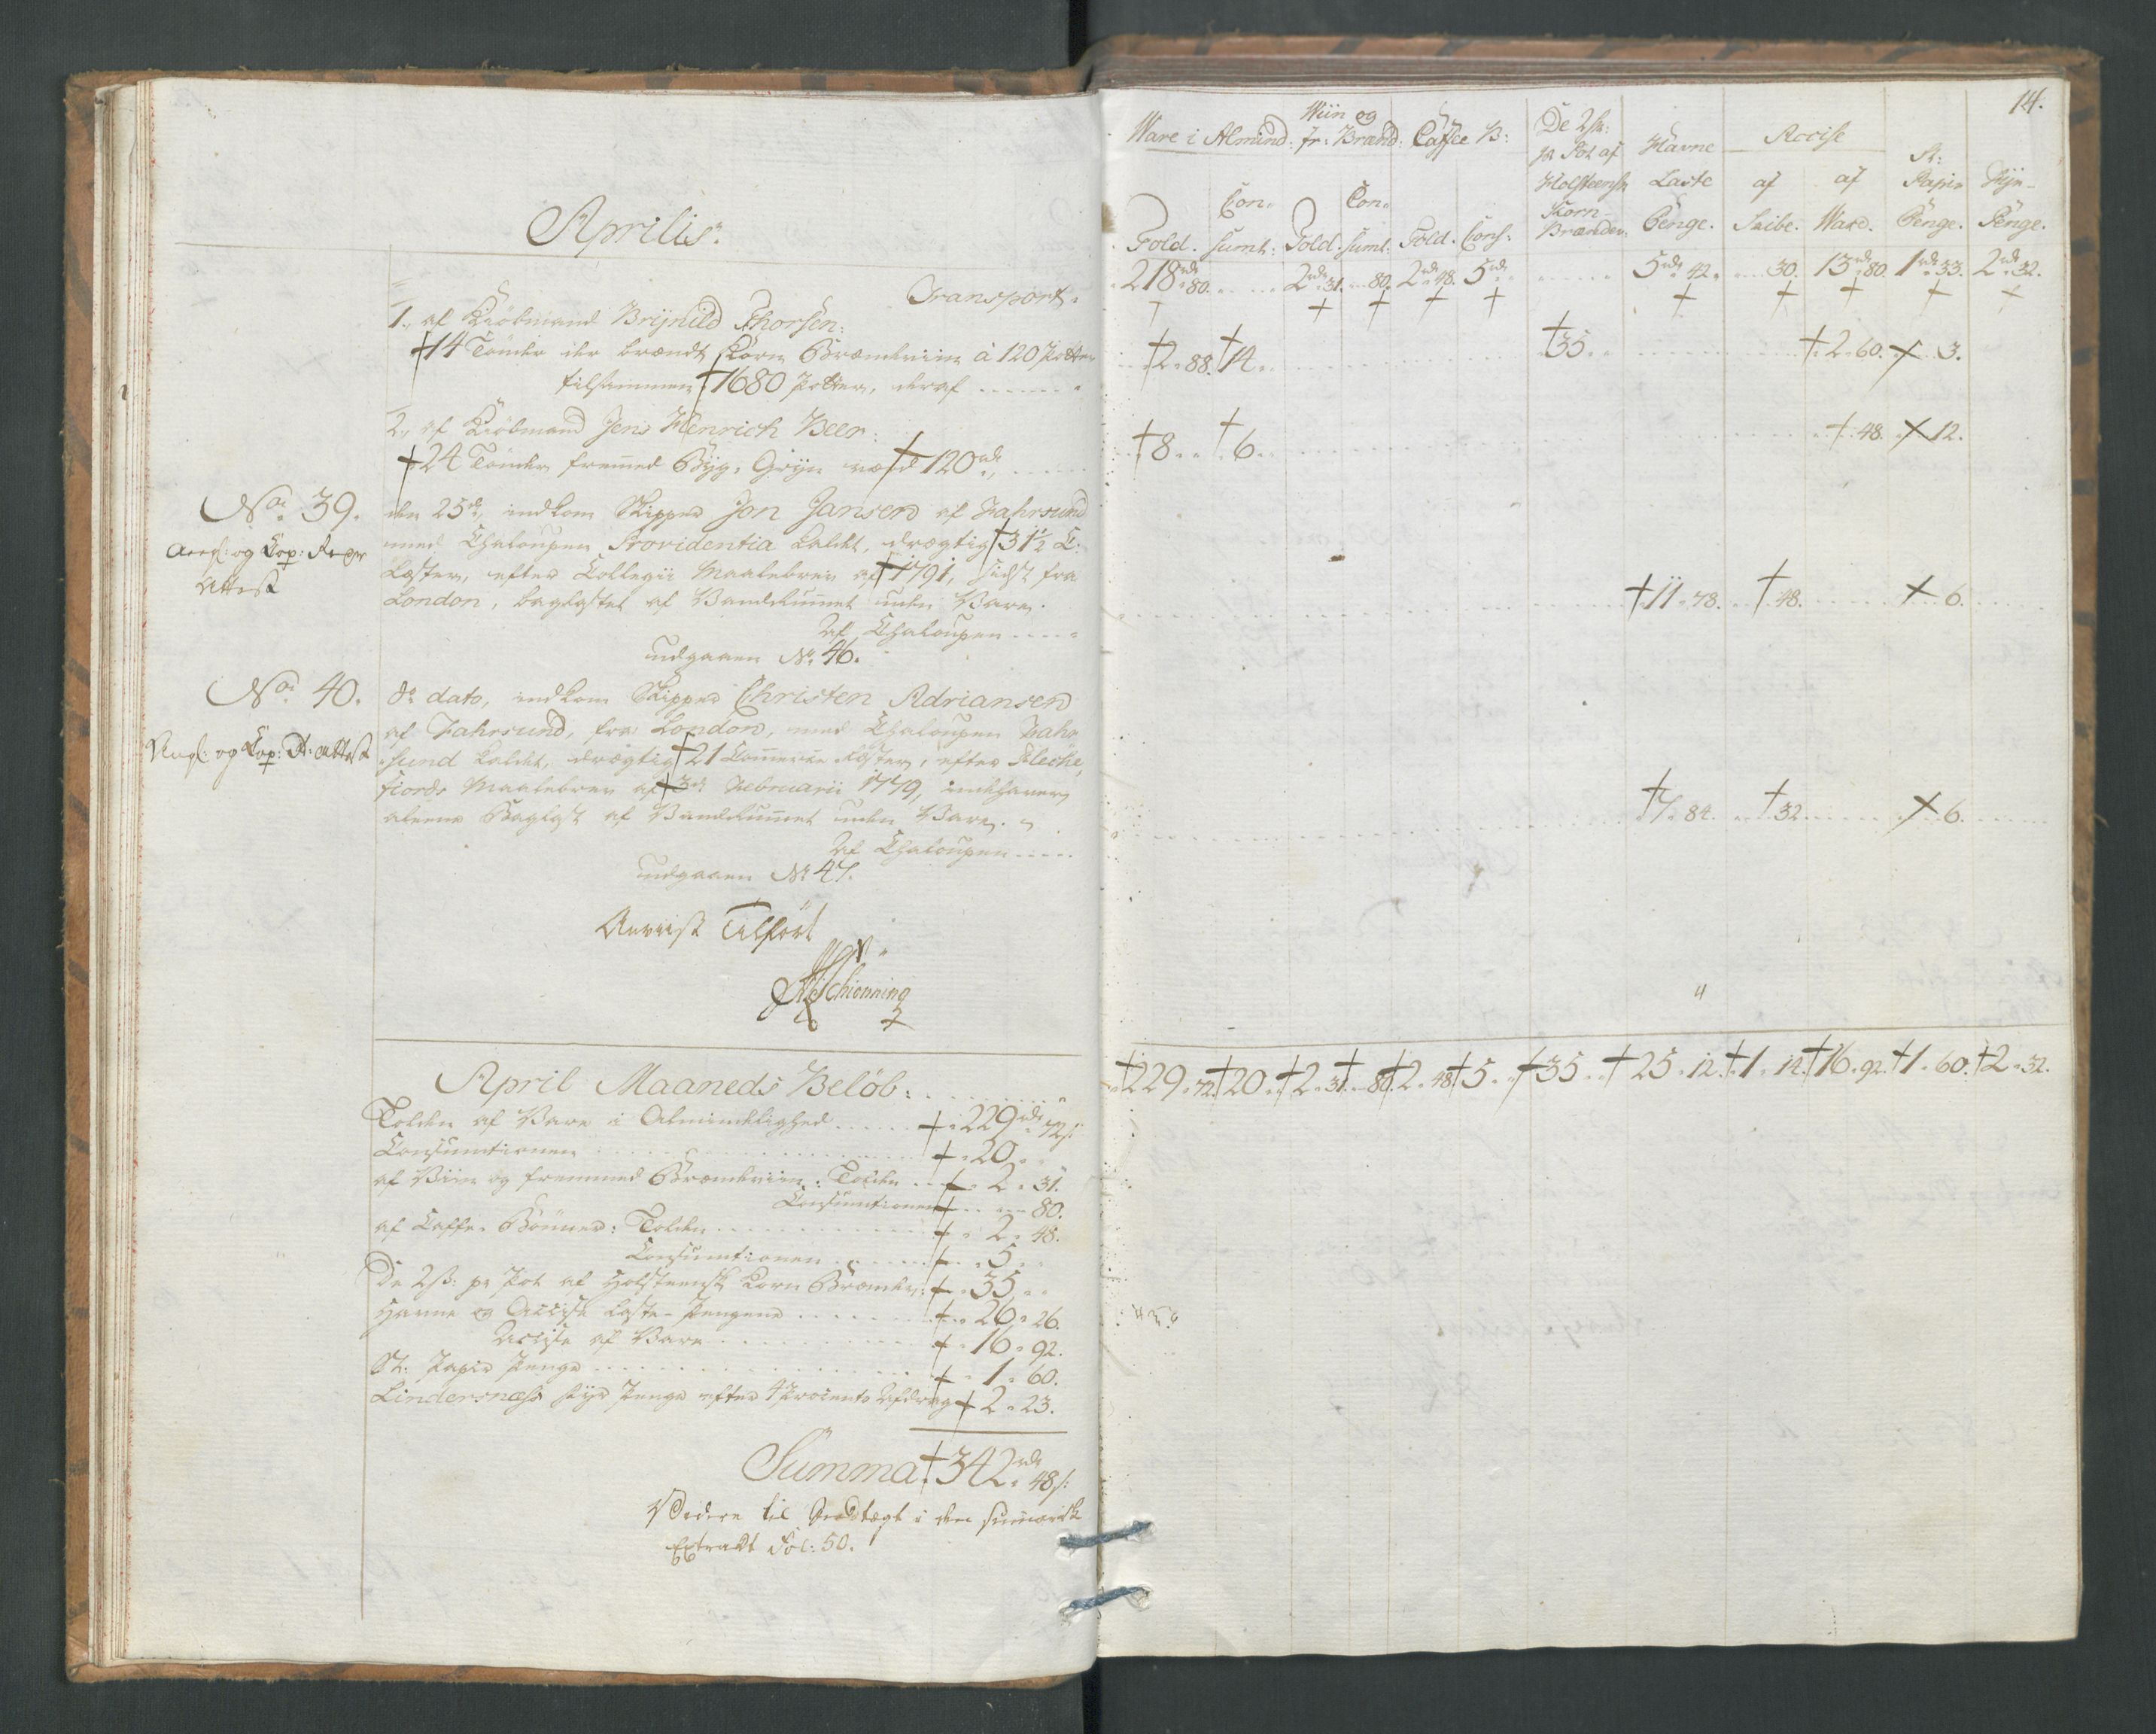 Aprilis.
Transport.
1., af Kiöbmand Brÿnild Thorsen:
14 Tönder der brændt Korn Brændeviin à 120 Potter
tilsammen 1680 Potter, deraf
2., af Kiöbmand Jens Henrich Beer:
24 Tönder fremed Bÿg-Grÿn værd 120 rd
No. 39.
Angl: og Cop:
Attest
den 25de, indkom Skipper Jon Jansen af Fahrsund
med Chaloupen Providentia kaldt, drægtig 31½ C:
Læster, efter Collegii Maalebrev af 1791, sidst fra
London, baglastet af Vandrummet uden Vare.
Af Chaloupen
udgaaen No. 46.
No. 40.
Angl: og Cop: St: Attest
do dato, indkom Skipper Christen Adriansen
af Fahrsund, fra London, med Chaloupen Fahr
sund kaldt, drægtig 21 Comerce Læster, efter Flecke
fiords Maalebrev af 3de Februarii 1779, indehaver
alene Baglast af Vandrummet uden Vare.
Af Chaloupen
udgaaen No. 47.
Anviist Tilført
Schiönning
April Maaneds Belöb:
Tolden af Vare i Almindelighed 229 rd 72 s:
Consumtionen 20.
af Viin og fremmed Brændeviin: Tolden 2. 31.
Consumtionen 80.
af Caffe-Bönner: Tolden 2. 48.
Consumtionen 5.
De 2 s: pr Pot af Holsteensk Korn Brændev: 35.
Havne og Accise Laste-Pengene 26. 26.
Accise af Vare 16. 92.
St. Papir Penge 1. 60.
Lindersnæss Fÿr Penge efter 4 Procento Afdrag 2. 23.
Summa 342 rd 48 s:
Videre til Indtægt i den sumariske
Extrakt Fol: 50.
14.
Ware i Almind: Wiin og fr: Brænd: Caffee B: De 2 sk: pr Pot af Holsteensk Korn-Brændev: Havne Laste Penge. Accise af Skibe. af Ware. St: Papir Penge. Fÿr-Penge.
Told. Con-sumt: Told. Con-sumt: Told. Cons:
218 rd 80. 2 rd 31. 80. 2 rd 48. 5 rd 5 rd 42. 30. 13 rd 80. 1 rd 33. 2 rd 32.
2. 88. 14. 35. 2. 60. 3.
8. 6. 48. 12.
11. 78. 48. 6.
7. 84. 32. 6.
229. 72. 20. 2. 31. 80. 2. 48. 5. 35. 25. 12. 1. 14. 16. 92. 1. 60. 2. 32.